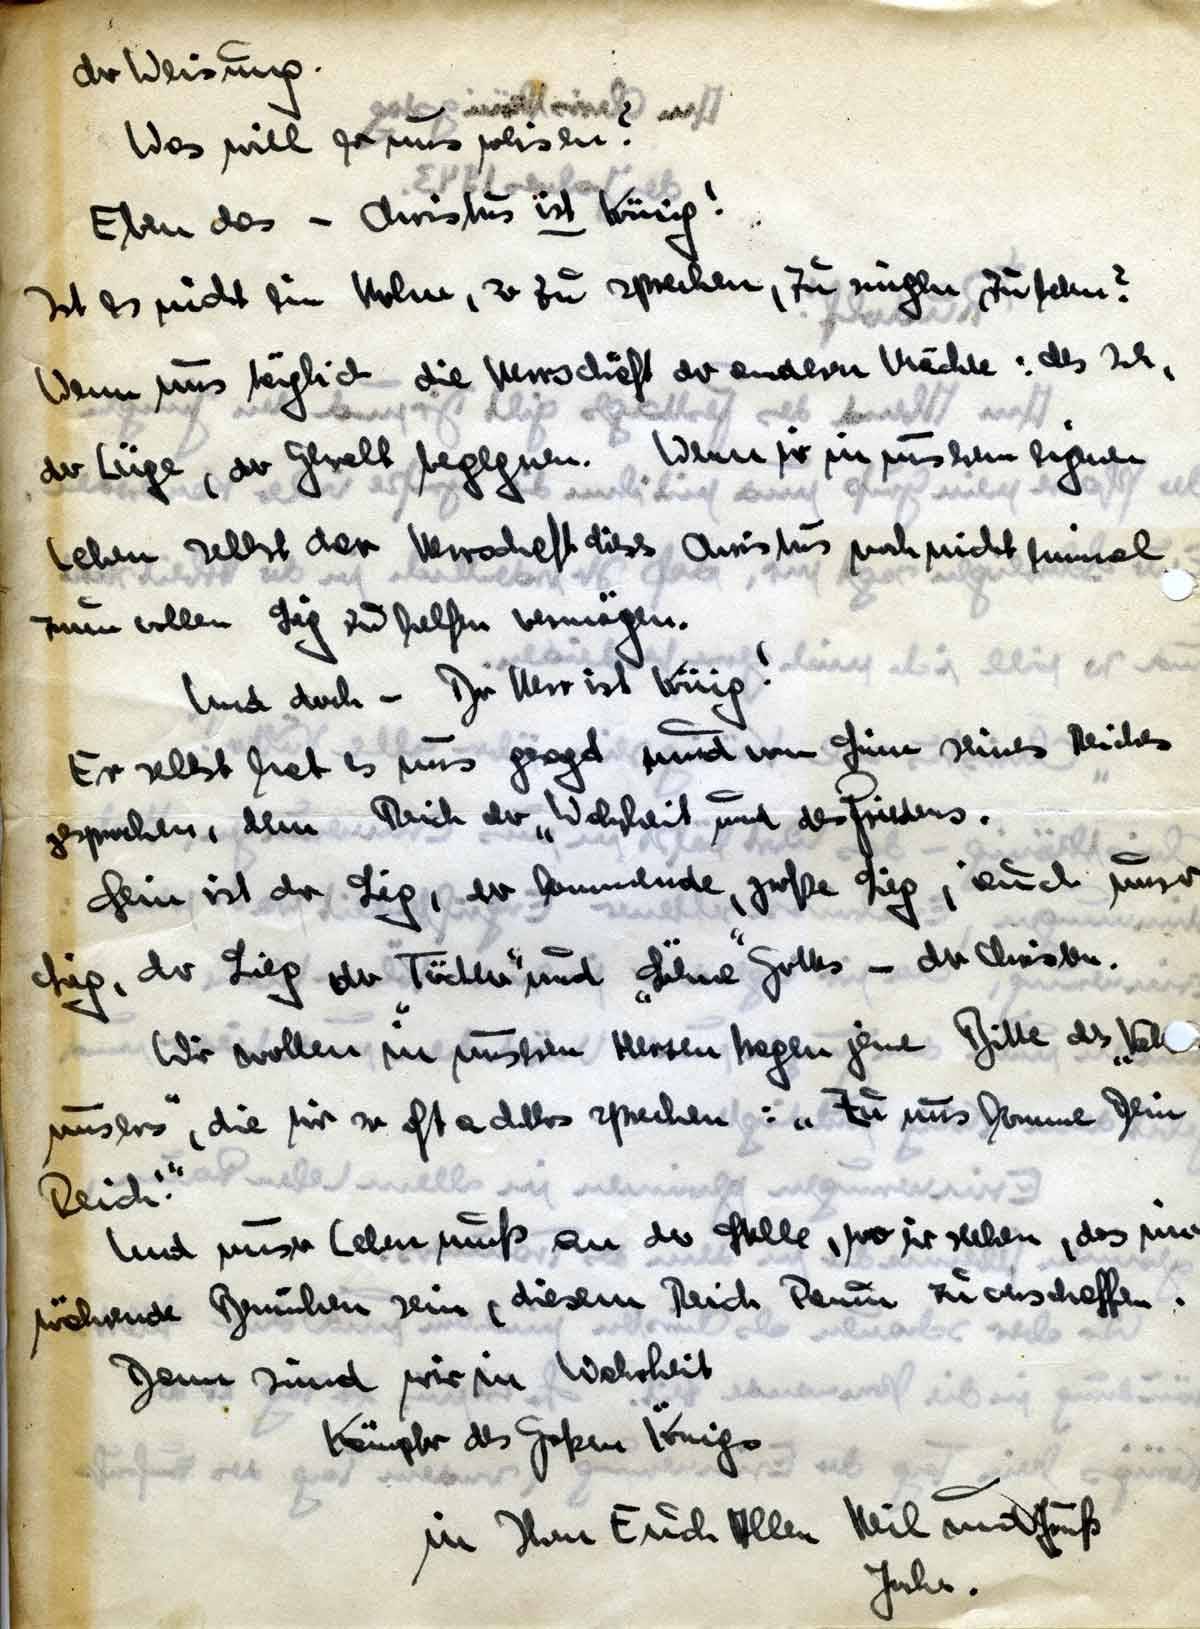 der Weisung.
Was will er uns weisen?
Eben das – Christus ist König!
Ist es nicht ein Hohn, so zu sprechen, zu singen, zu beten?
Wenn uns täglich die Herrschaft der andern Mächte: des Ich,
der Lüge, der Gewalt begegnen. Wenn wir in unserem eignen
Leben selbst der Herrschaft dieses Christus noch nicht einmal
zum vollen Sieg zu helfen vermögen.
Und doch – Der Herr ist König!
Er selbst hat es uns gesagt und vom Sinn seines Reiches
gesprochen, dem Reich der „Wahrheit und des Friedens.“
Sein ist der Sieg, der kommende, große Sieg, auch unser
Sieg, der Sieg der „Töchter“ und „Söhne“ Gottes – der Christen.
Wir wollen in unseren Herzen tragen jene Bitte des „Vater
unsers“, die wir so oft achtlos sprechen: „Zu uns komme Dein
Reich!“
Und unser Leben muß an der Stelle, wo wir stehen, das immer
währende Bemühen sein, diesem Reich Raum zu erschaffen.
Dann sind wir in Wahrheit
Kämpfer des Großen Königs
in Ihm Euch Allen Heil und Gruß